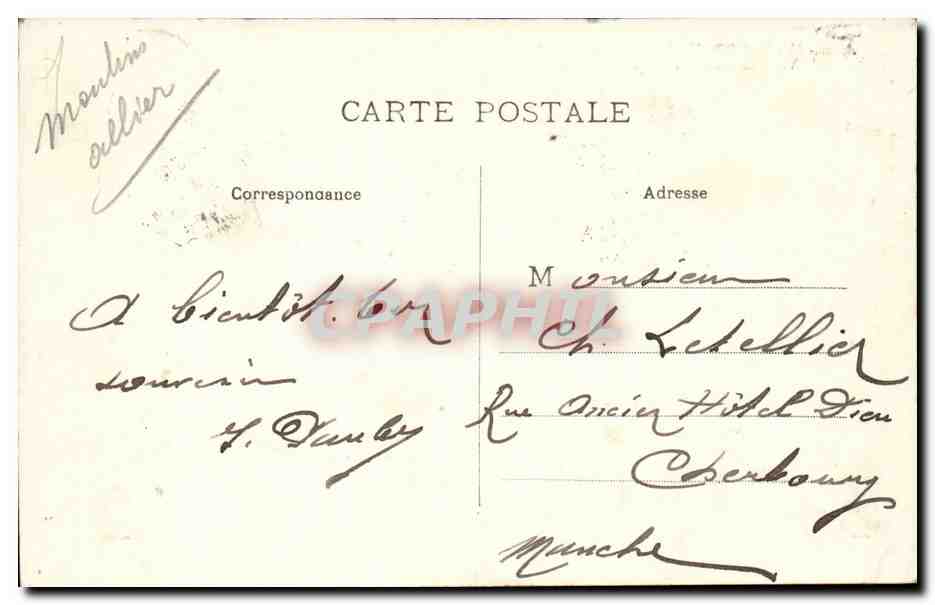 Moulins
allier
CARTE POSTALE
Correspondance
Adresse
A bientôt. bon
souvenir
Monsieur
Ch. Letellier
Rue Ancien Hôtel Dieu
Cherbourg
Manche
CPAPHIL